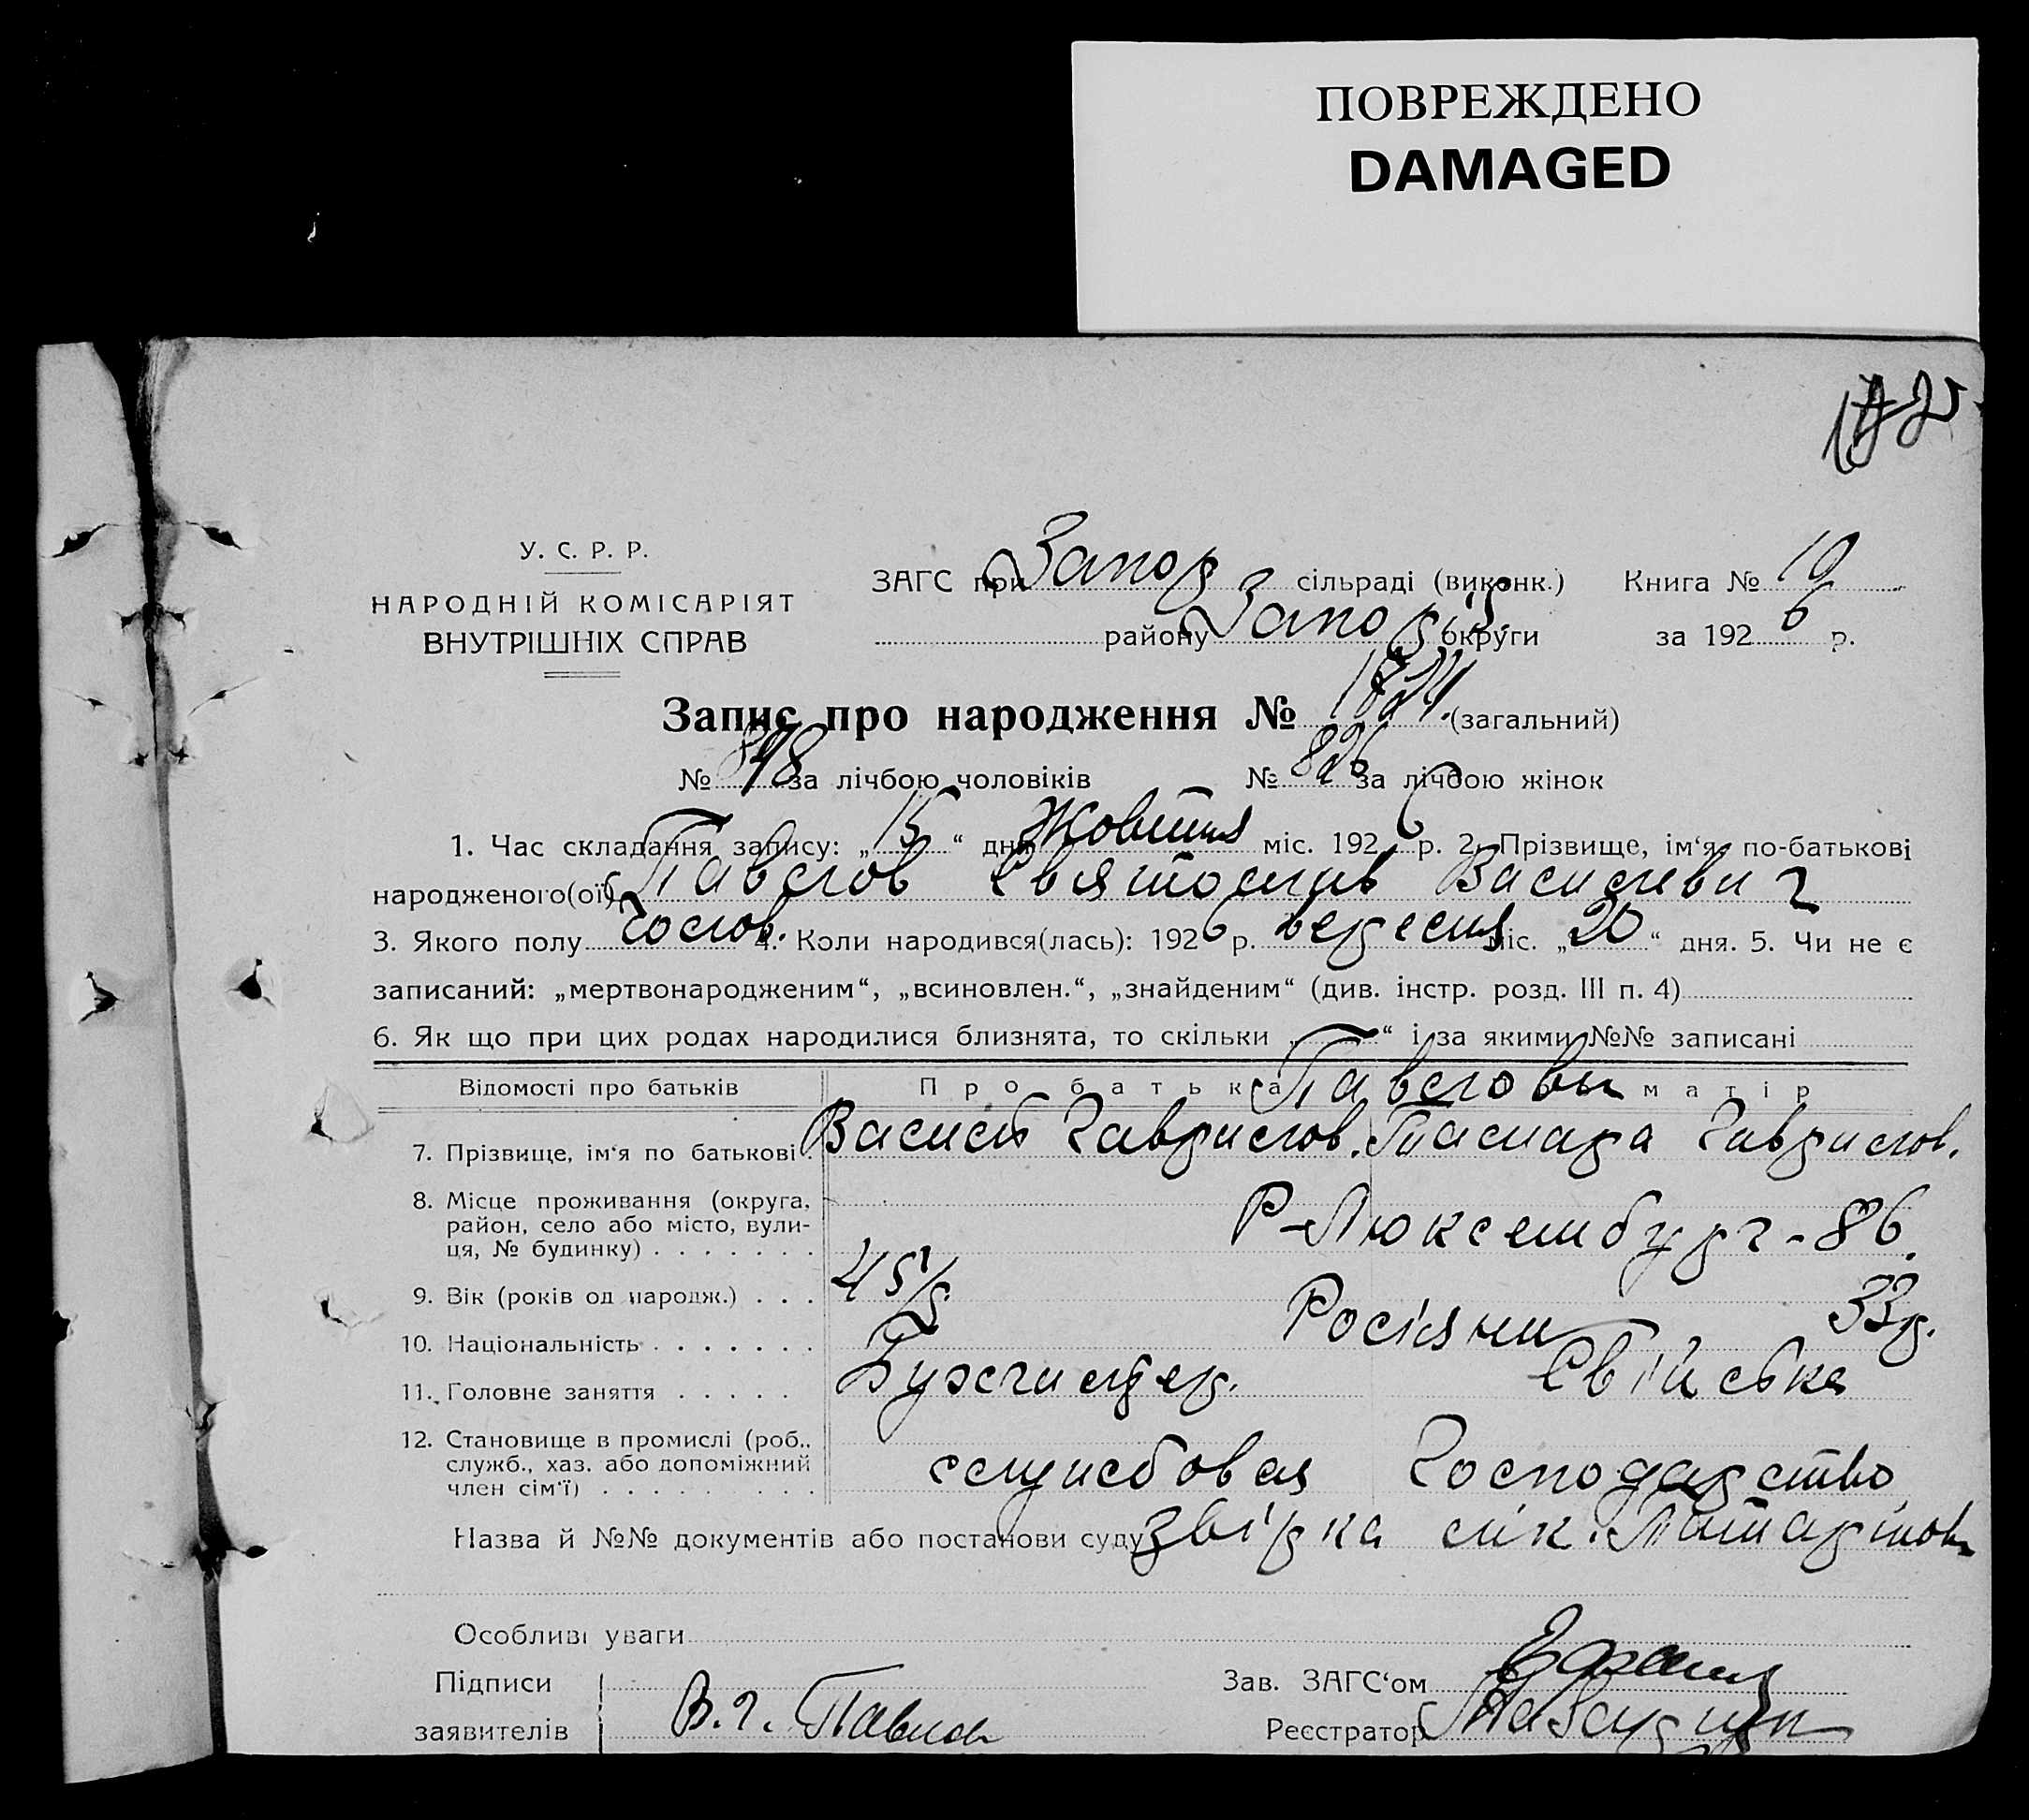 ПОВРЕЖДЕНО
DAMAGED
У. С. Р. Р.
НАРОДНІЙ КОМІСАРІЯТ
ВНУТРІШНІХ СПРАВ
ЗАГС при Запор сільраді (виконк.) Книга № 10
району Запоріз. округи за 1926 р.
Запис про народження № (загальний)
№ за лічбою чоловіків № 826 за лічбою жінок
1. Час складання запису: „15“ дня Жовтня міс. 1926 р. 2. Прізвище, ім‘я, по-батькові
народженого(ої) Павлов Святослав Василєвич
3. Якого полу чолов. 4. Коли народився(лась): 1926 р. вересня міс. „20“ дня. 5. Чи не є
записаний: „мертвонародженим“, „всиновлен.“, „знайденим“ (див. інстр. розд. III п. 4)
6. Як що при цих родах народилися близнята, то скільки „ “ і за якими №№ записані
Відомості про батьків Про батька матір
Павловы
7. Прізвище, ім‘я по батькові Василь Гаврилов. Тамара Гаврилов.
8. Місце проживання (округа, район, село або місто, вули-ця, № будинку) Р-Люксембург - 86.
9. Вік (років од народж.) 45 р. 33 р.
10. Національність Росіяни
11. Головне заняття Бухгалтер. Свійське
12. Становище в промислі (роб., служб., хаз. або допоміжний член сім‘ї) службовая Господарство
Назва й №№ документів або постанови суду звірка лік.
Особливі уваги
Підписи
заявителів В. Г. Павлов
Зав. ЗАГС‘ом
Реєстратор